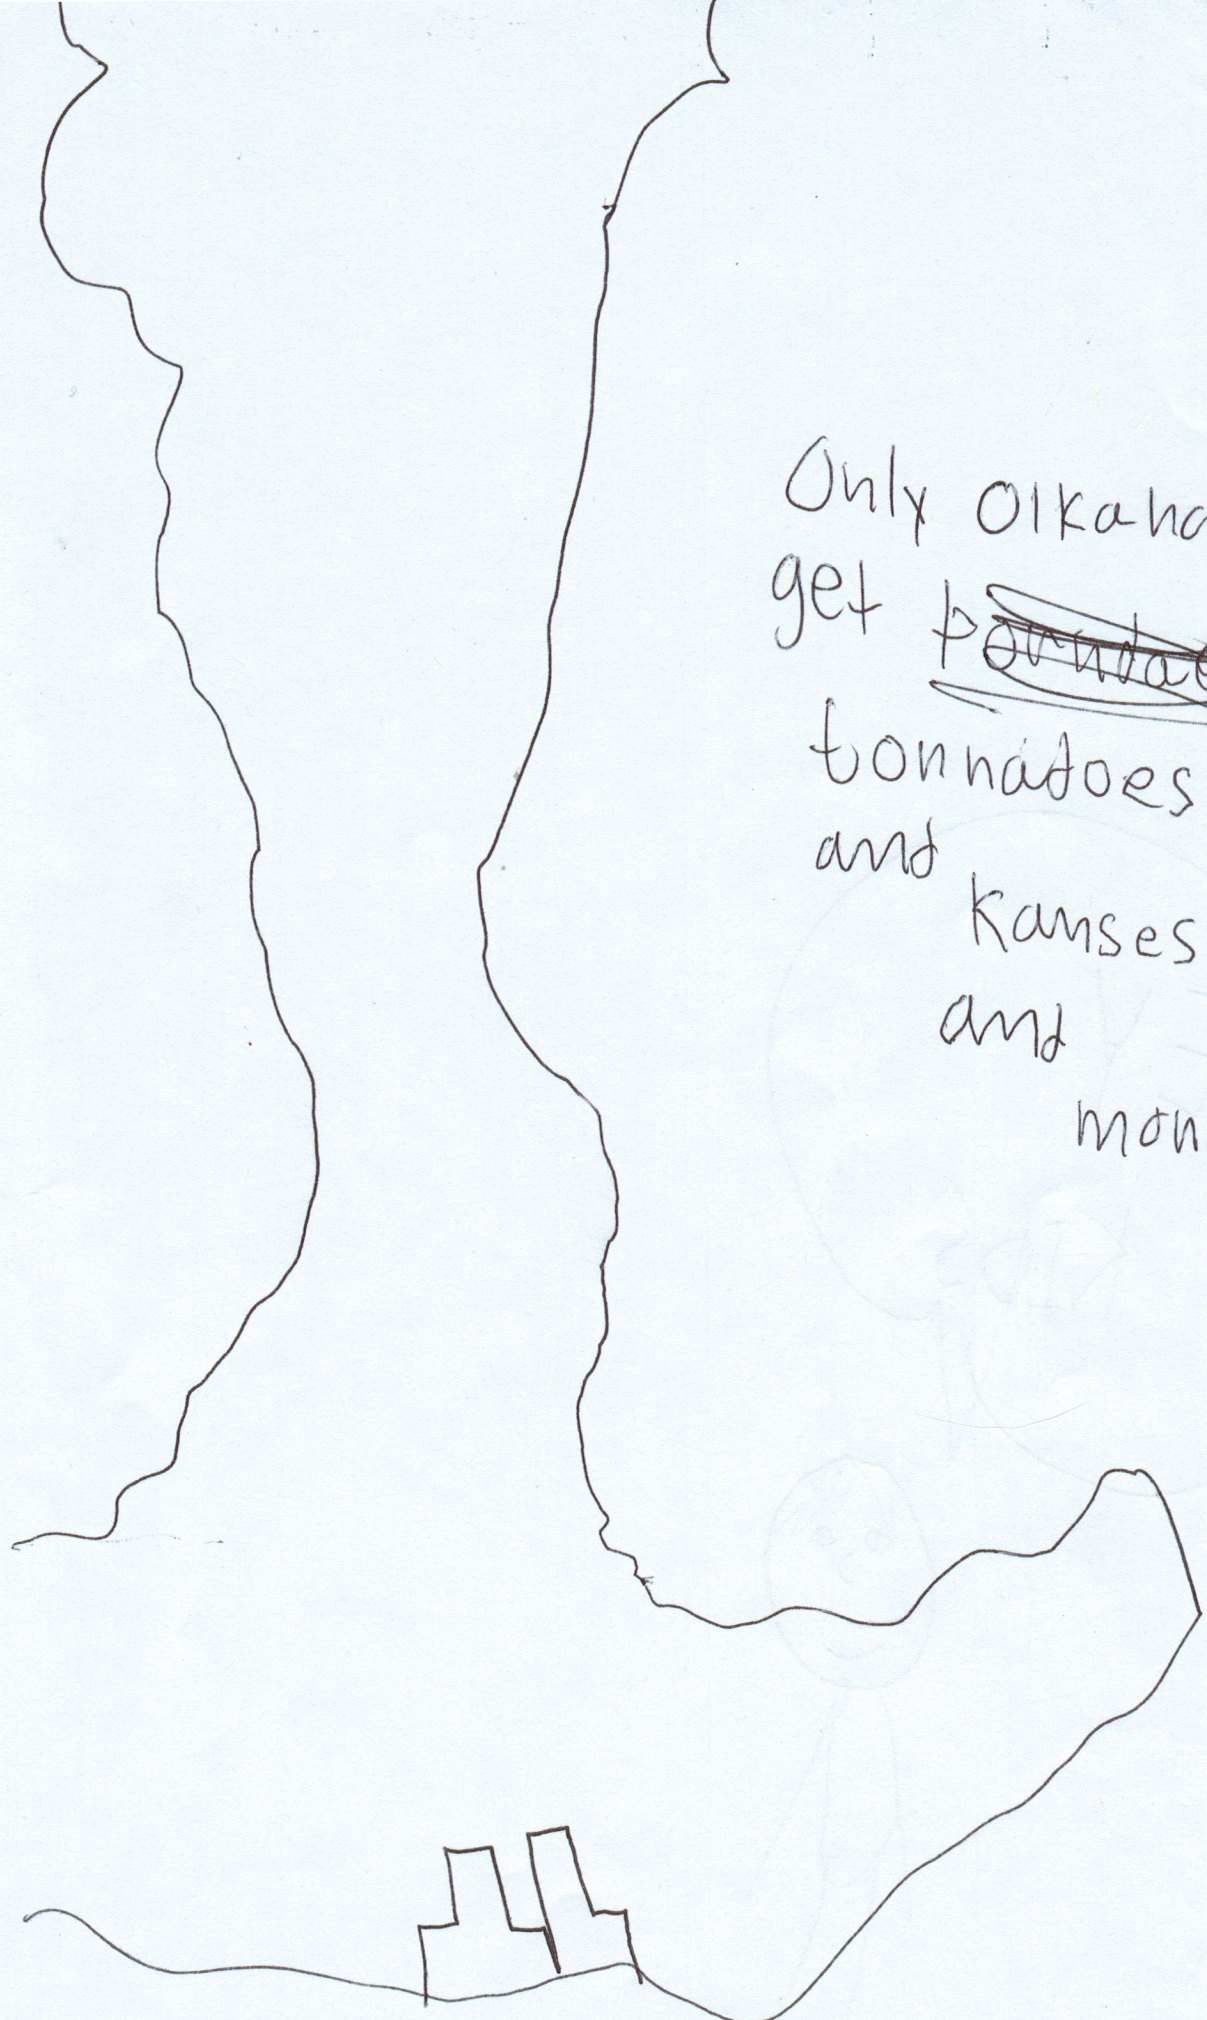 Only Olkaho
get
tonnadoes
and
Kanses
and
mon